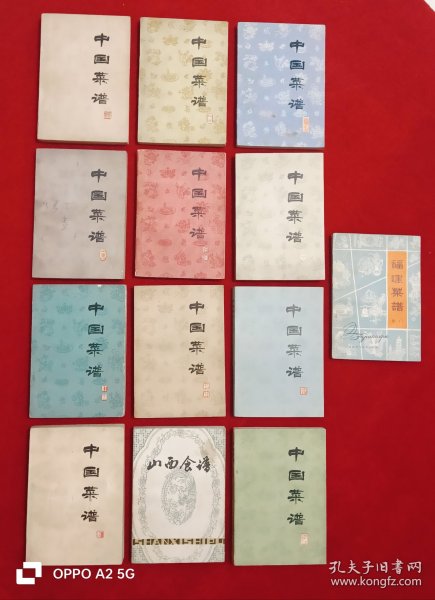 中国菜谱
中国菜谱
中国菜谱
中国菜谱
中国菜谱
中国菜谱
福建菜谱
中国菜谱
中国菜谱
中国菜谱
中国菜谱
山西食谱
SHANXISHIPU
中国菜谱
OPPO A2 5G
孔夫子旧书网
www.kongfz.com